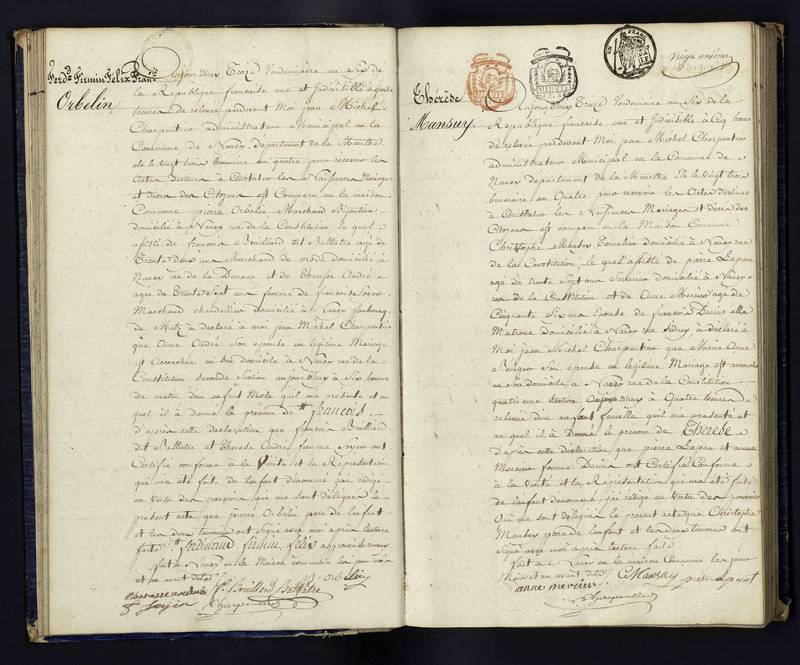 Ferd.d Firmin Felix Franç.s
Orbelin
Aujourdhuy Treize Vendemiaire an Six de
la Republique francaise une et Indivisible à quatre
heures de relevée pardevant Moi jean Michel
Charpentier administrateur Municipal en la
Commune de Nancy Departement de la Meurthe
élu le vingt trois brumaire an quatre pour recevoir les
Actes destinés à Constater les Naissances Mariages
et décès des Citoyens est Comparu en la maison
Commune pierre Orbelin Marchand Bijoutier
domicilié à Nancy rue de la Constitution le quel
assisté de francois Brillard dit Battatre agé de
trente deux ans Marchand de mode domicilié à
Nancy rue de la Douane et de therese Oudré
agée de trente Sept ans femme de francois
Marchand chandellier domicilié à Nancy faubourg
de Metz a déclaré à moi jean Michel Charpentier
que Anne Oudré Son epouse en legitime Mariage
est accouchée en son domicile à Nancy rue de la
Constitution Seconde Section aujourdhuy à Six heures
du matin d'un enfant Male qui ma presenté et au
quel il a donné le prénom de francois
d'après cette déclaration que francois Brillard
dit Battatre et therese Oudré femme ont
Certifié conforme à la Verité et la Representation
qui ma été fait de lenfant denommé jai redigé
en vertu des pouvoirs qui me sont délegués le
present acte que pierre Orbelin pere de lenfant
et les deux temoins ont signé avec moi après lecture
faite. ferdinand firmin felix approuvé
fait à Nancy en la Maison commune les jour mois
et an avant dits
Orbelin
Charpentier
Vingt unieme
UN FRANC
Thérèse
Mansuy
Aujourdhuy Treize Vendemiaire an Six de la
Republique francaise une et Indivisible à Cinq heures
de relevée pardevant Moi jean Michel Charpentier
administrateur Municipal en la Commune de
Nancy departement de la Meurthe élu le vingt trois
brumaire an Quatre pour recevoir les Actes destinés
à Constater les Naissances Mariages et décès des
Citoyens est comparu en la Maison Commune
Christophe Mansuy Tonnelier domicilié à Nancy rue
de la Constitution le quel assisté de pierre Lepan
age de trente Sept ans domicilié à Nancy
rue de la Constitution et de Anne Mercier age de
Cinquante Six ans Epouse de francois Darius elle
Matrone domicilié à Nancy rue Sidney a déclaré à
Moi jean Michel Charpentier que Marie Anne
Son epouse en legitime Mariage est accouchée
en son domicile à Nancy rue de la Constitution
quatrieme Section Aujourdhuy à Quatre heures de
relevée d'un enfant femelle quil ma presenté et
au quel il à Donné le prenome de Thérèse
d'après cette déclaration que pierre Lepan et anne
Mercier femme Darius ont Certifié Conforme
à la Verité et la Representation qui ma été faite
de lenfant denommé jai rédigé en Vertu des pouvoirs
Qui me sont délegués le present acte que Christophe
Mansuy pere de lenfant et les deux temoins ont
signé avec moi après lecture faite
fait à Nancy en la maison Commune les jour
Mois et an avant dits
C Mansuy
anne mercier
Charpentier